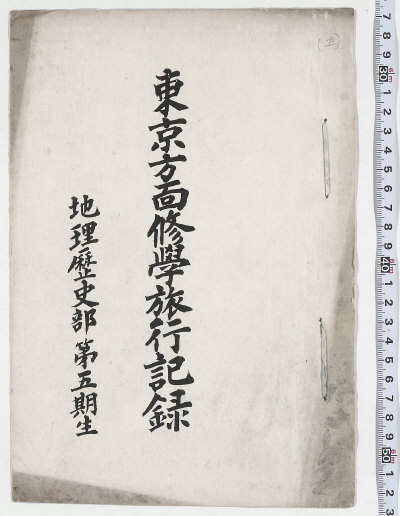 (五)
東京方面修學旅行記録
地理歷史部 第五期生
7
8
9
30 cm
1
2
3
4
5
6
7
8
9
40 cm
1
2
3
4
5
6
7
8
9
50 cm
1
2
3